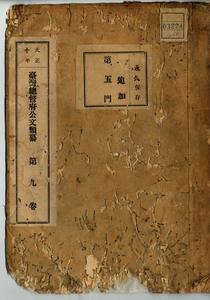 03224
永久保存
追加
第五門
大正十年
臺灣總督府公文類纂 第九卷